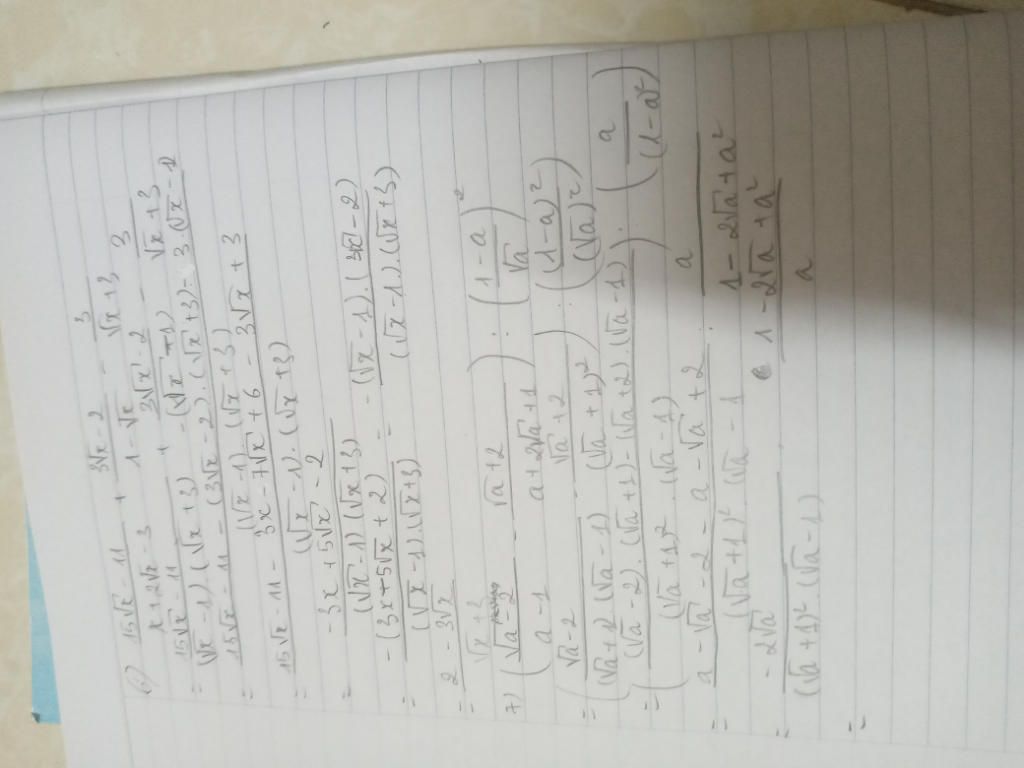 6) (15√x - 11)/(x + 2√x - 3) + (3√x - 2)/(1 - √x) - 3/(√x + 3)
= (15√x - 11)/((√x - 1).(√x + 3)) + (3√x - 2)/(-(√x - 1)) - 3/(√x + 3)
= (15√x - 11 - (3√x - 2).(√x + 3) - 3(√x - 1))/((√x - 1).(√x + 3))
= (15√x - 11 - 3x - 7√x + 6 - 3√x + 3)/((√x - 1).(√x + 3))
= (-3x + 5√x - 2)/((√x - 1)(√x + 3))
= (-(3x + 5√x + 2))/((√x - 1).(√x + 3)) = (-(√x - 1).(3√x - 2))/((√x - 1).(√x + 3))
= (2 - 3√x)/(√x + 3)
7) ((√a - 2)/(a - 1) - (√a + 2)/(a + 2√a + 1)) : ((1 - a)/√a)²
= ((√a - 2)/((√a + 1)(√a - 1)) - (√a + 2)/((√a + 1)²)) : ((1 - a)²/(√a)²)
= (((√a - 2).(√a + 1) - (√a + 2).(√a - 1))/((√a + 1)².(√a - 1))) . (a/(1 - a)²)
= (a - √a - 2 - a - √a + 2)/((√a + 1)².(√a - 1)) . a/(1 - 2√a + a²)
= (-2√a)/((√a + 1)².(√a - 1)) . (1 - 2√a + a²)/a
=